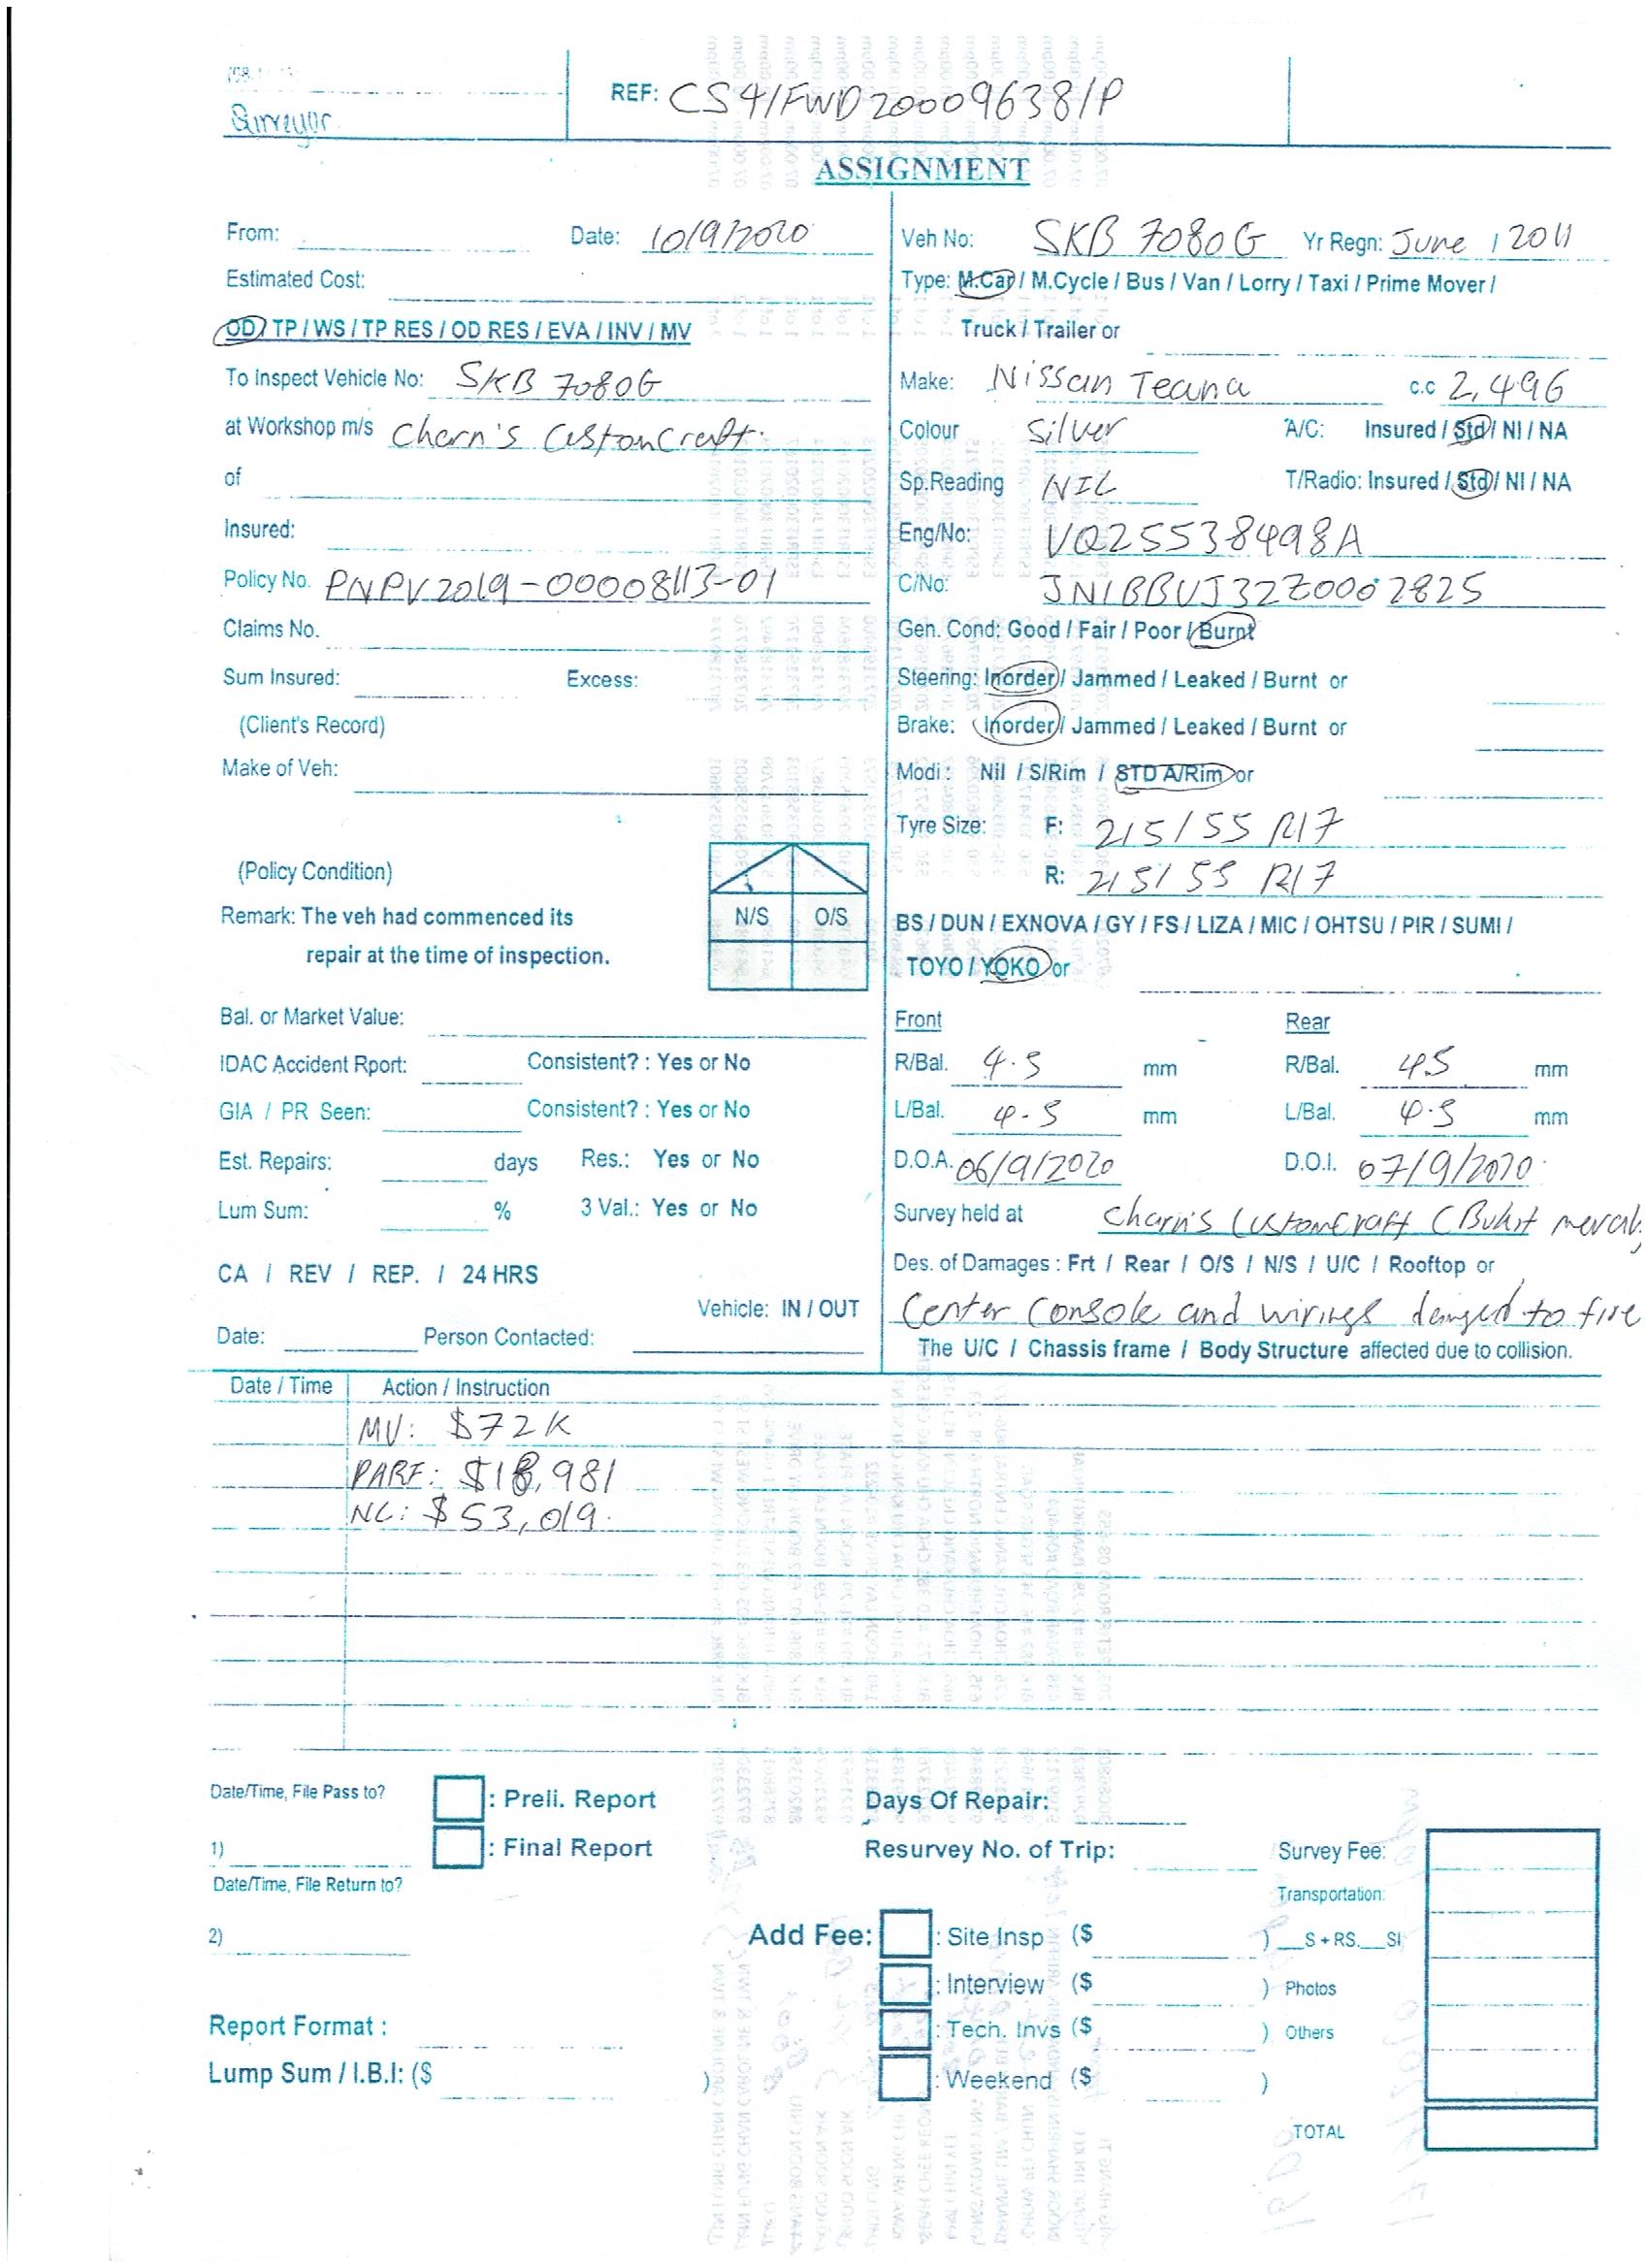 Surveyor
REF: CS4/FWD20009638/P
ASSIGNMENT
From:
Date: 10/9/2020
Estimated Cost:
OD / TP / WS / TP RES / OD RES / EVA / INV / MV
To Inspect Vehicle No: SKB 7080G
at Workshop m/s Charn's Customcraft.
of
Insured:
Policy No. PNPV2019-00008113-01
Claims No.
Sum Insured: Excess:
(Client's Record)
Make of Veh:
(Policy Condition)
Remark: The veh had commenced its
repair at the time of inspection.
N/S O/S
Bal. or Market Value:
IDAC Accident Rport: Consistent? : Yes or No
GIA / PR Seen: Consistent? : Yes or No
Est. Repairs: days Res.: Yes or No
Lum Sum: % 3 Val.: Yes or No
CA / REV / REP. / 24 HRS
Vehicle: IN / OUT
Date: Person Contacted:
Veh No: SKB 7080G Yr Regn: June / 2011
Type: M.Car / M.Cycle / Bus / Van / Lorry / Taxi / Prime Mover /
Truck / Trailer or
Make: Nissan Teana c.c 2,496
Colour Silver A/C: Insured / Std / NI / NA
Sp.Reading NIL T/Radio: Insured / Std / NI / NA
Eng/No: VQ25538498A
C/No: JN1BBUJ32Z0002825
Gen. Cond: Good / Fair / Poor / Burnt
Steering: Inorder / Jammed / Leaked / Burnt or
Brake: Inorder / Jammed / Leaked / Burnt or
Modi: Nil / S/Rim / STD A/Rim or
Tyre Size: F: 215/55 R17
R: 215/55 R17
BS / DUN / EXNOVA / GY / FS / LIZA / MIC / OHTSU / PIR / SUMI /
TOYO / YOKO or
Front Rear
R/Bal. 4.5 mm R/Bal. 4.5 mm
L/Bal. 4.5 mm L/Bal. 4.5 mm
D.O.A. 06/9/2020 D.O.I. 07/9/2020
Survey held at Charn's Customcraft (Bukit merah)
Des. of Damages : Frt / Rear / O/S / N/S / U/C / Rooftop or
Center Console and wirings damged to fire
The U/C / Chassis frame / Body Structure affected due to collision.
Date / Time Action / Instruction
MV: $72K
PARF: $18,981
NL: $53,019.
Date/Time, File Pass to?
: Preli. Report
Days Of Repair:
1)
: Final Report
Resurvey No. of Trip:
Survey Fee:
Date/Time, File Return to?
Transportation:
2)
Add Fee: : Site Insp ($ ) __S + RS.__SI
: Interview ($ ) Photos
Report Format :
: Tech. Invs ($ ) Others
Lump Sum / I.B.I: ($ )
: Weekend ($ )
TOTAL